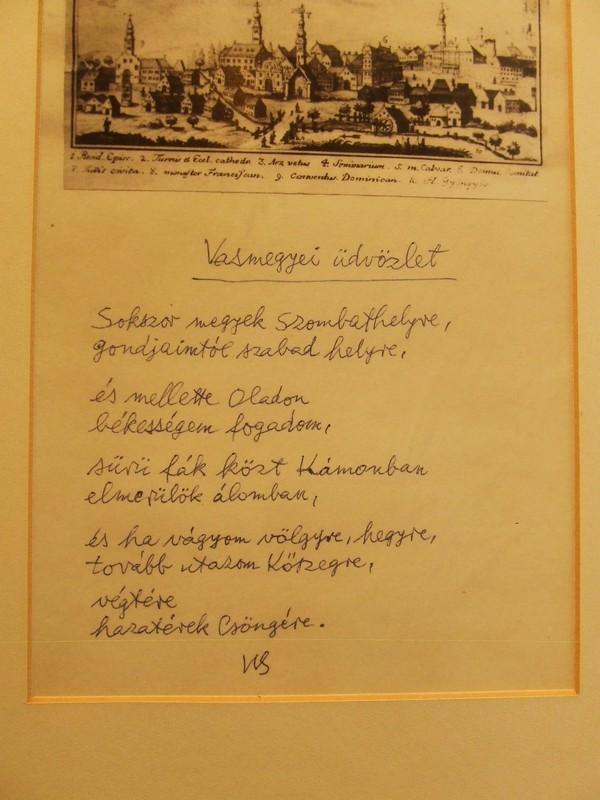 1. Resid. Episc. 2. Turris et Eccl. cathedr. 3. Arx vetus 4. Seminarium. 5. m. Calvar. 6. Domus
civita. 8. monaster Franciscan. 9. Conventus Dominican.
Vasmegyei üdvözlet
Sokszor megyek Szombathelyre,
gondjaimtól szabad helyre,
és mellette Oladon
békességem fogadom,
sűrű fák közt Kámonban
elmerülök álomban,
és ha vágyom völgyre, hegyre,
tovább utazom Kőszegre,
végtére
hazatérek Csöngére.
WS